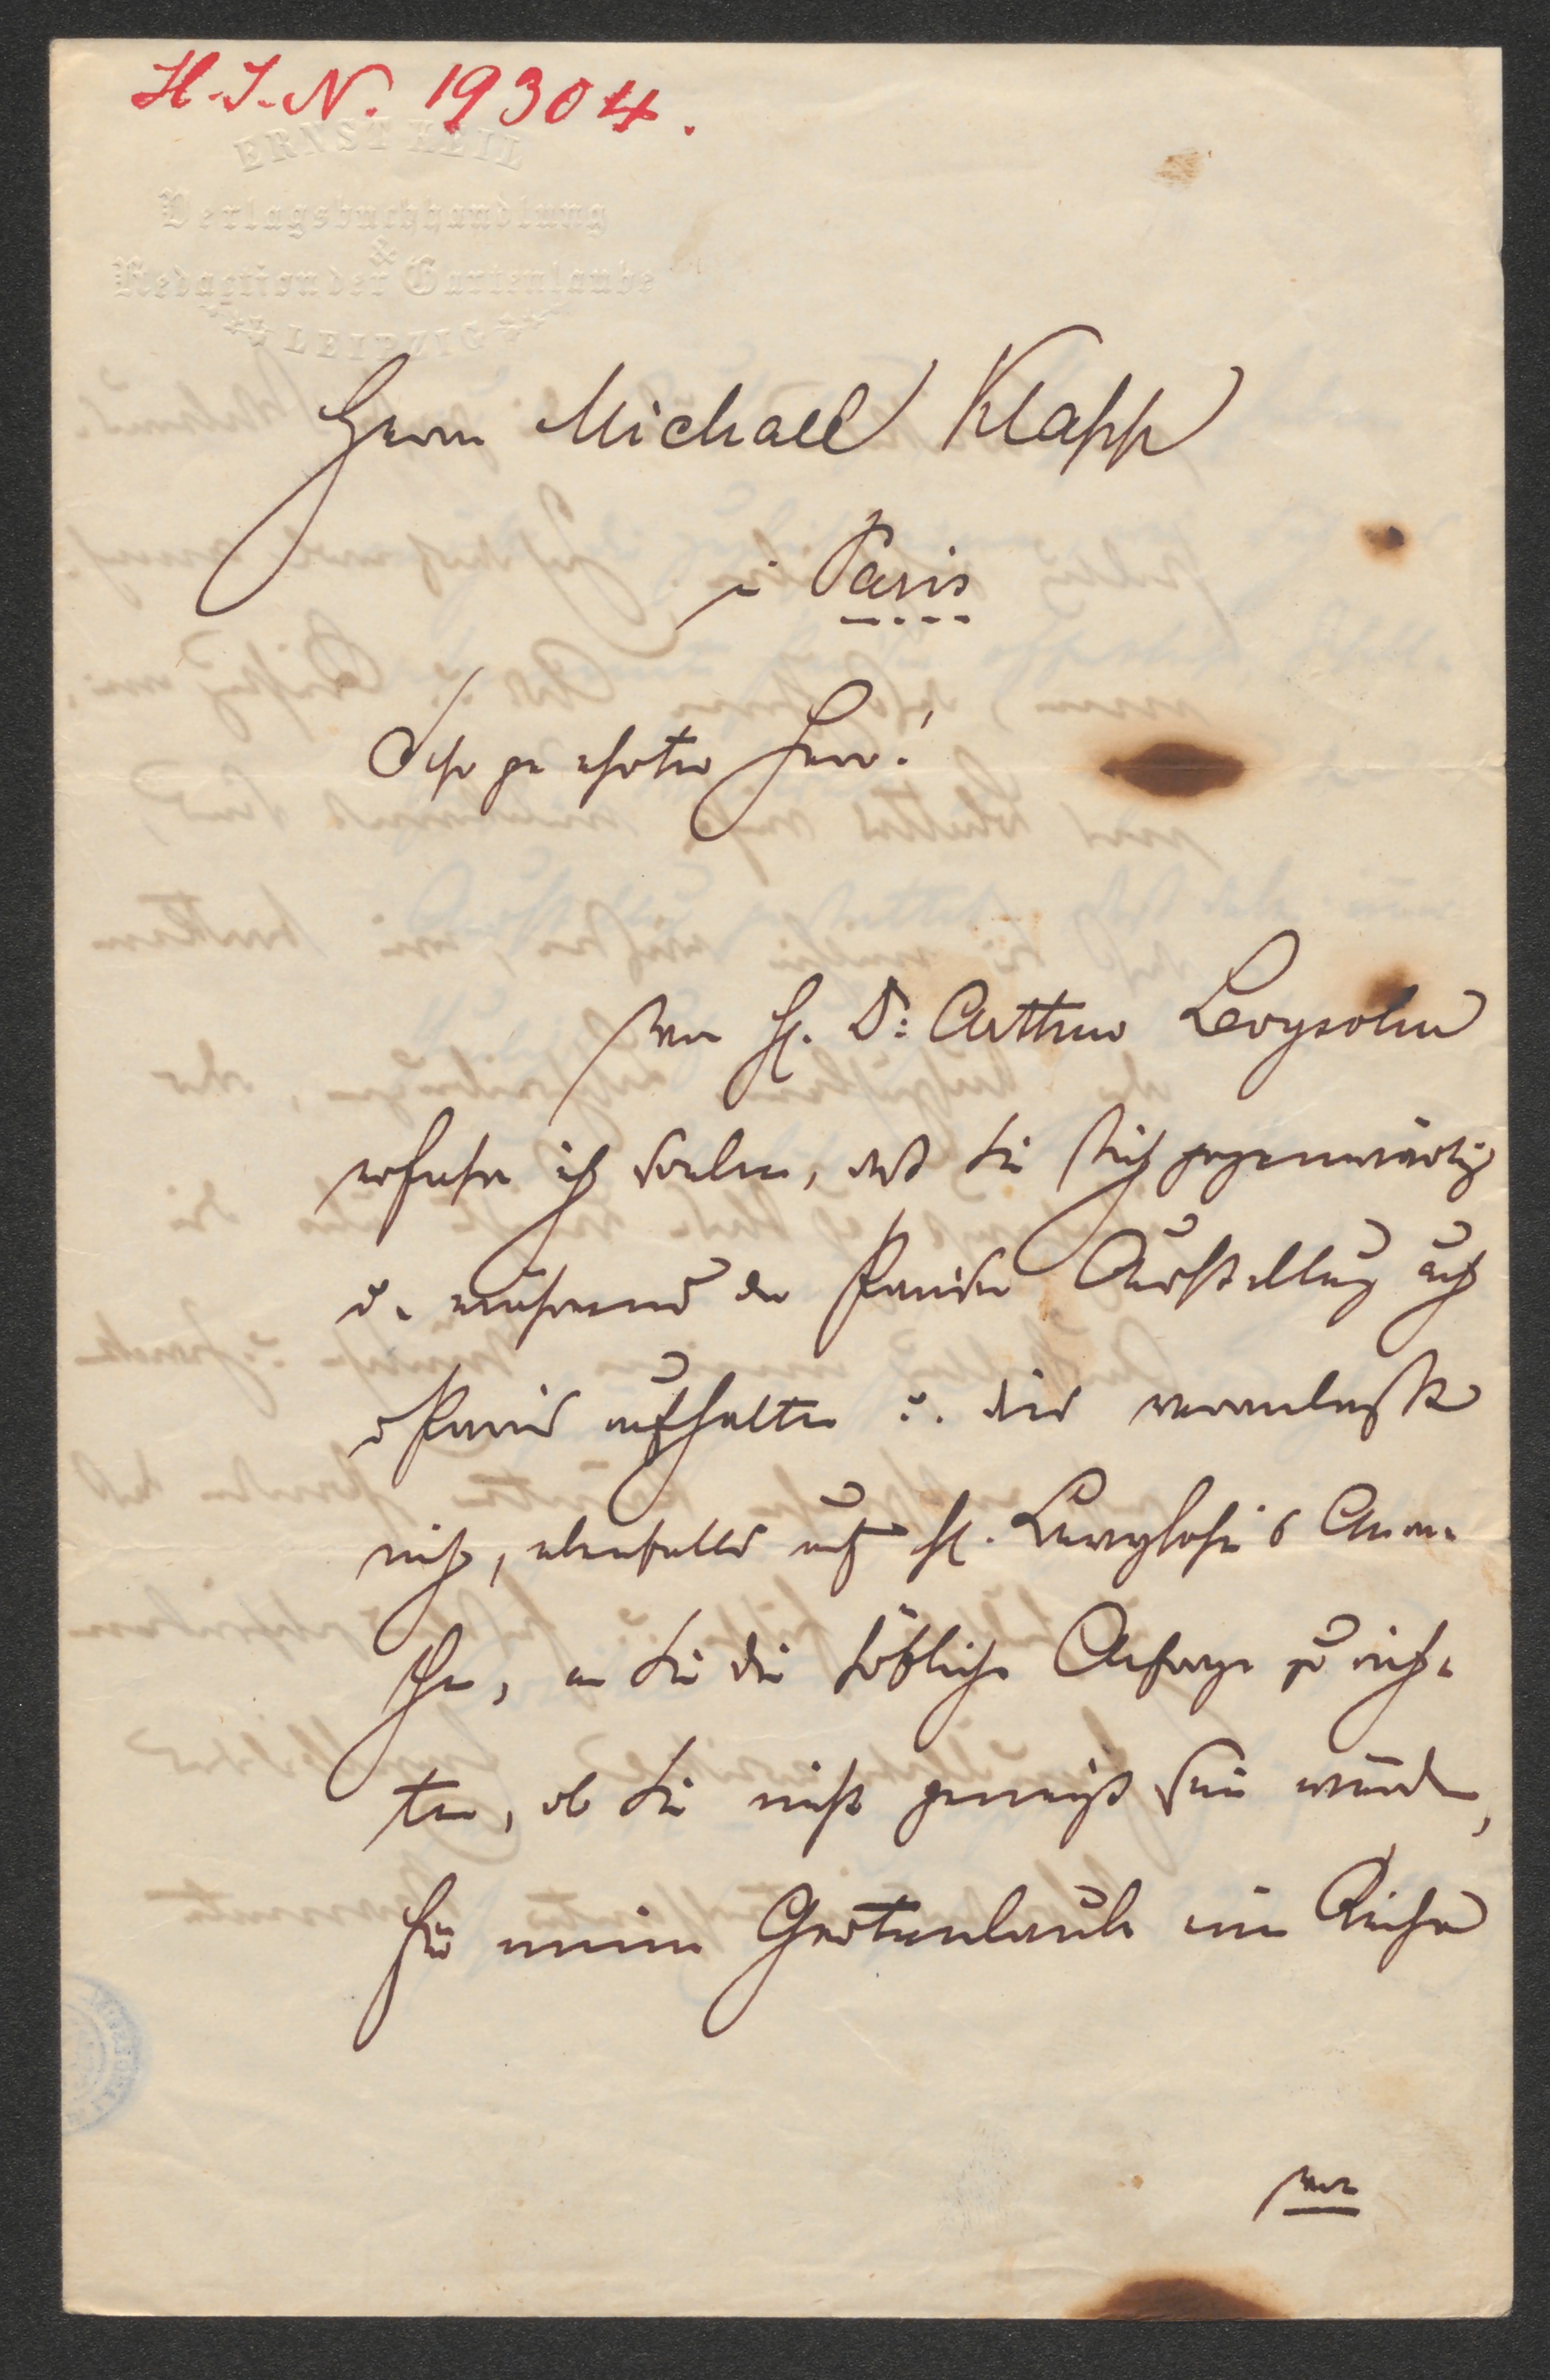 H.I.N. 19304.
ERNST KEIL
Verlagsbuchhandlung
&
Redaction der Gartenlaube
LEIPZIG
Herrn Michael Klapp
in Paris
Sehr geehrter Herr!
Von H. Dr: Arthur Levysohn
erfuhr ich soeben, daß Sie sich gegenwärtig
u. während der Pariser Ausstellung auch
Paris aufhalten u. dies veranlaßt
mich, ebenfalls auf H. Levysohn's Anra-
then, an Sie die höfliche Anfrage zu rich-
ten, ob Sie nicht geneigt sein würden,
für meine Gartenlaube eine Reihe
von